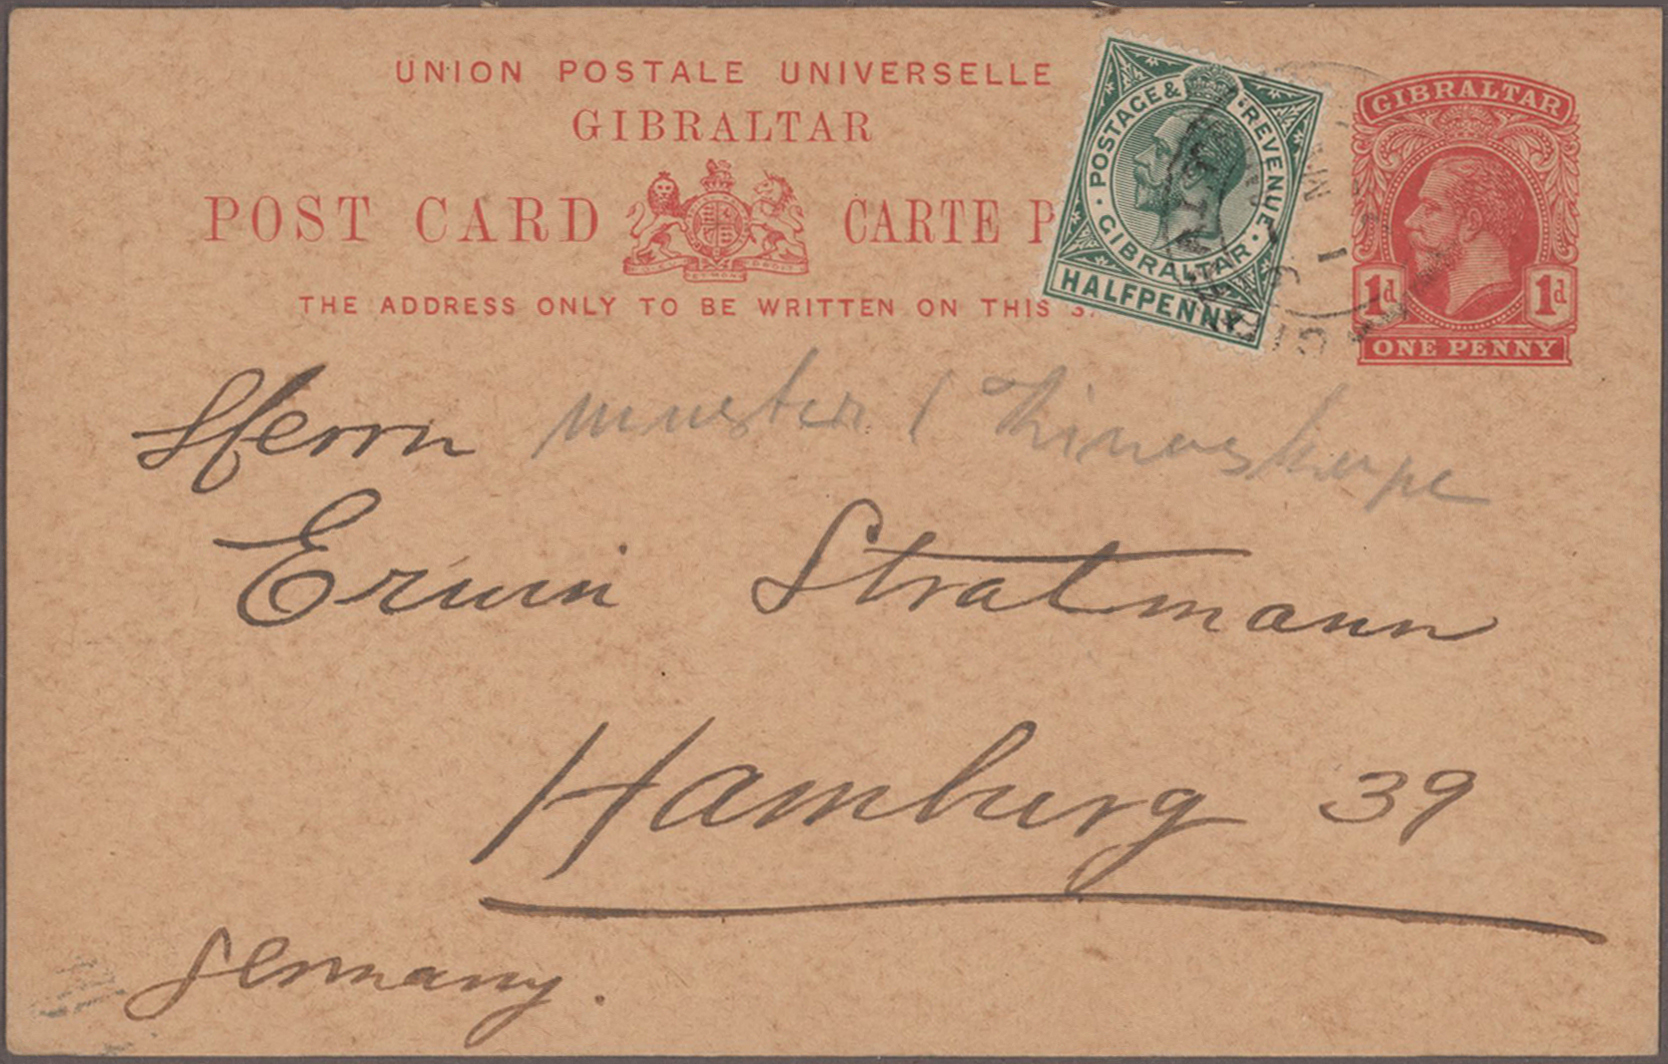 UNION POSTALE UNIVERSELLE
GIBRALTAR
POST CARD CARTE P
DIEU ET MON DROIT
THE ADDRESS ONLY TO BE WRITTEN ON THIS S
POSTAGE & REVENUE
GIBRALTAR
HALFPENNY
GIBRALTAR
1d 1d
ONE PENNY
Herrn
Erwin Stratmann
Hamburg 39
Germany.